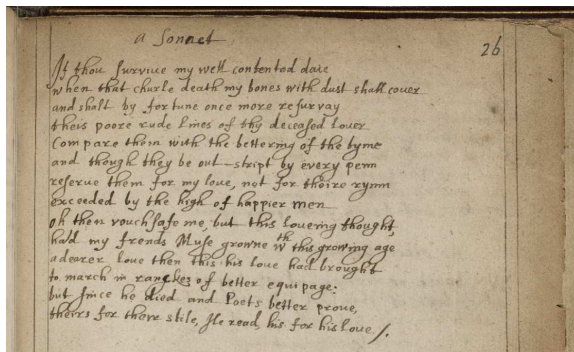 a Sonnet
26
If thou survive my well contented daie
when that churle death my bones with dust shall cover
and shalt by fortune once more resurvay
theis poore rude lines of thy deceased lover
Compare them with the bettering of the tyme
and though they be out-stript by every penn
reserve them for my love, not for theire rymn
exceeded by the high of happier men
oh then vouchsafe me, but this lovering thought,
hadd my frends Muse growne wth this growing age
a dearer love then this his love had brought
to march in ranckes of better equipage:
but since he died and Poets better prove,
theirs for their stile, Ile read, his for his love./.